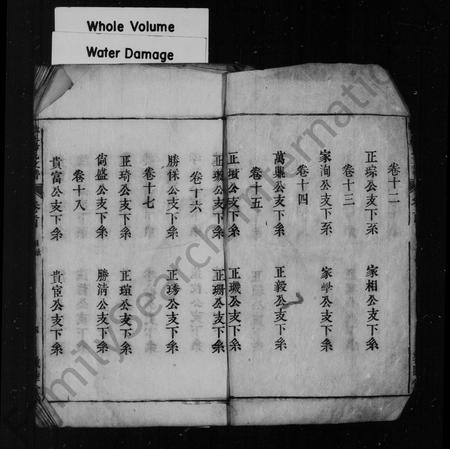 Whole Volume
Water Damage
卷十二
正琮公支下系
家相公支下系
卷十三
家洵公支下系
家學公支下系
卷十四
萬鎰公支下系
正毅公支下系
卷十五
正瓚公支下系
正璣公支下系
正珊公支下系
卷十六
勝保公支下系
正琇公支下系
卷十七
正琦公支下系
正瑄公支下系
尚盛公支下系
勝清公支下系
卷十八
貴富公支下系
貴宦公支下系
FamilySearch International